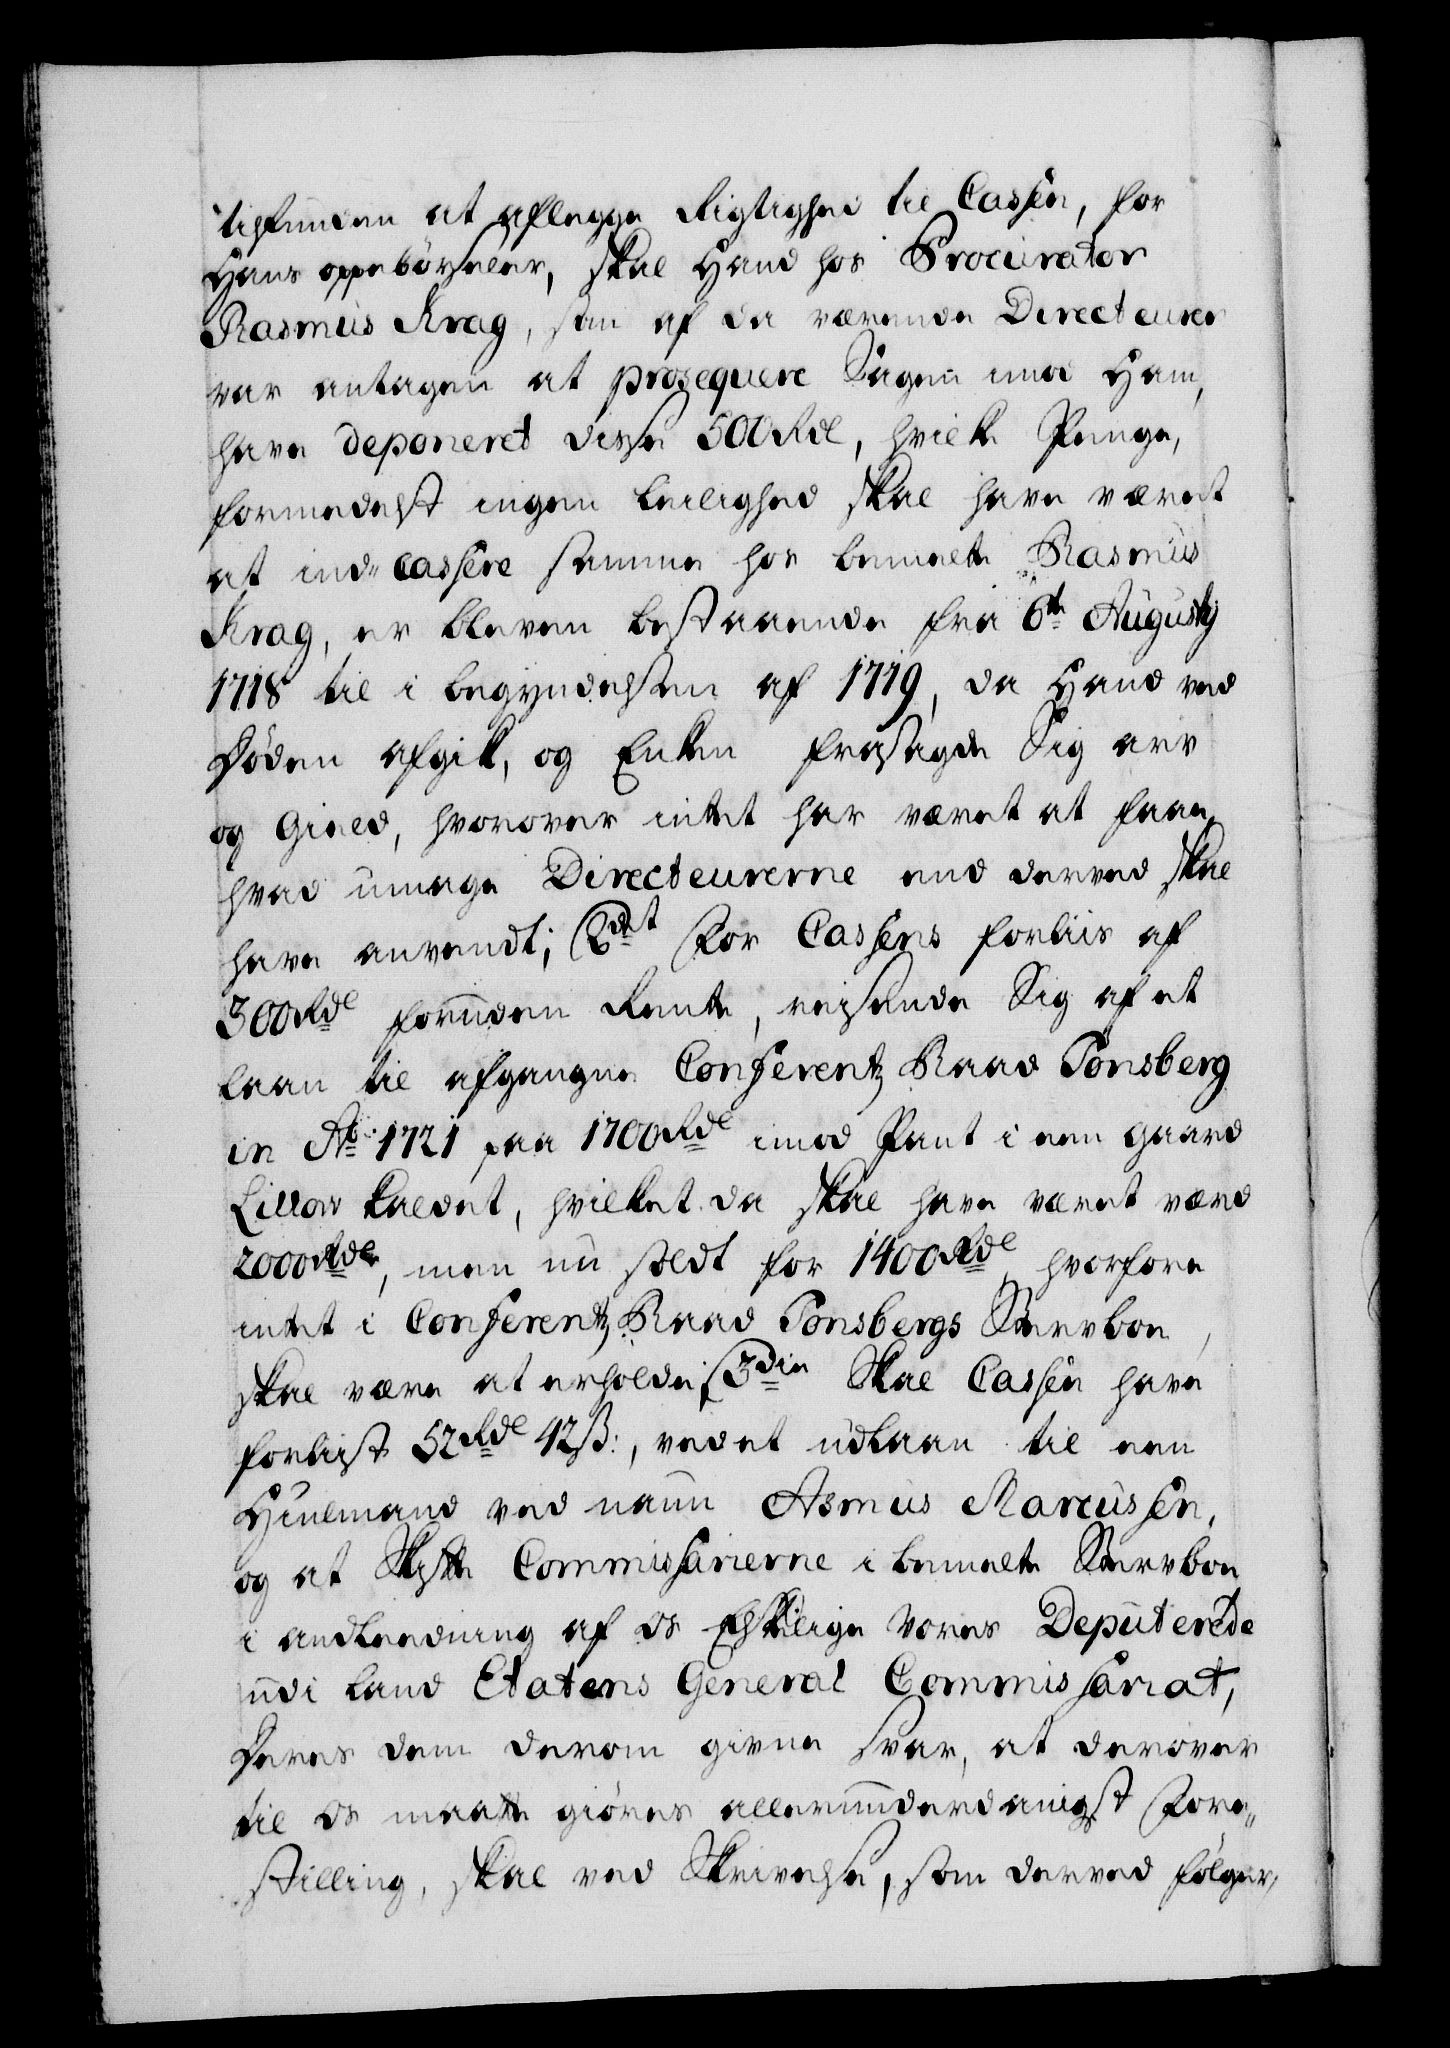 tilfunden at aflegge Rigtighed til Cassen, for
Hans oppebörseler, skal Hand hos Procurator
Rasmus Krag, som af da værende Directeurer
var antagen at prosequere Sagen imod Ham,
have deponeret disse 500 Rdl, hvilke Penge,
formedelst ingen leilighed skal have været
at ind- cassere samme hos bemelte Rasmus
Krag, er bleven bestaaende fra 6te Augusty
1718 til i begyndelsen af 1719, da Hand ved
Döden afgik, og Enken fraxsagde Sig arv
og Gield, hvorover intet har været at faae,
hvad umage Directeurerne end derved skal
have anvendt; 2det For Cassens forliis af
300 Rdl foruden Rente, reisende Sig af et
laan til afgangne Conferentz Raad Tonsberg
in Ao 1721 paa 1700 Rdl imod Pant i een Gaard
Lillow kaldet, hvilket da skal have været værd
2000 Rdlr, men nu soldt for 1400 Rdl hvorfore
intet i Conferentz Raad Tonsbergs Stervboe,
skal være at erholde; 3die Skal Cassen have
forlist 52 Rdl 42 ß:, ved et udlaan til een
Huulmand ved naun Asmus Marcussen,
og at Skifte Commissarierne i bemelte Stervboe
i andleedning af os Elskelige Vores Deputerede
udi Land Etatens General Commissariat,
Deres dem derom givne svar, at derover
til os maatte giöres allerunderdanigst Fore-
stilling, skal ved Skrivelse, som derved fölger,